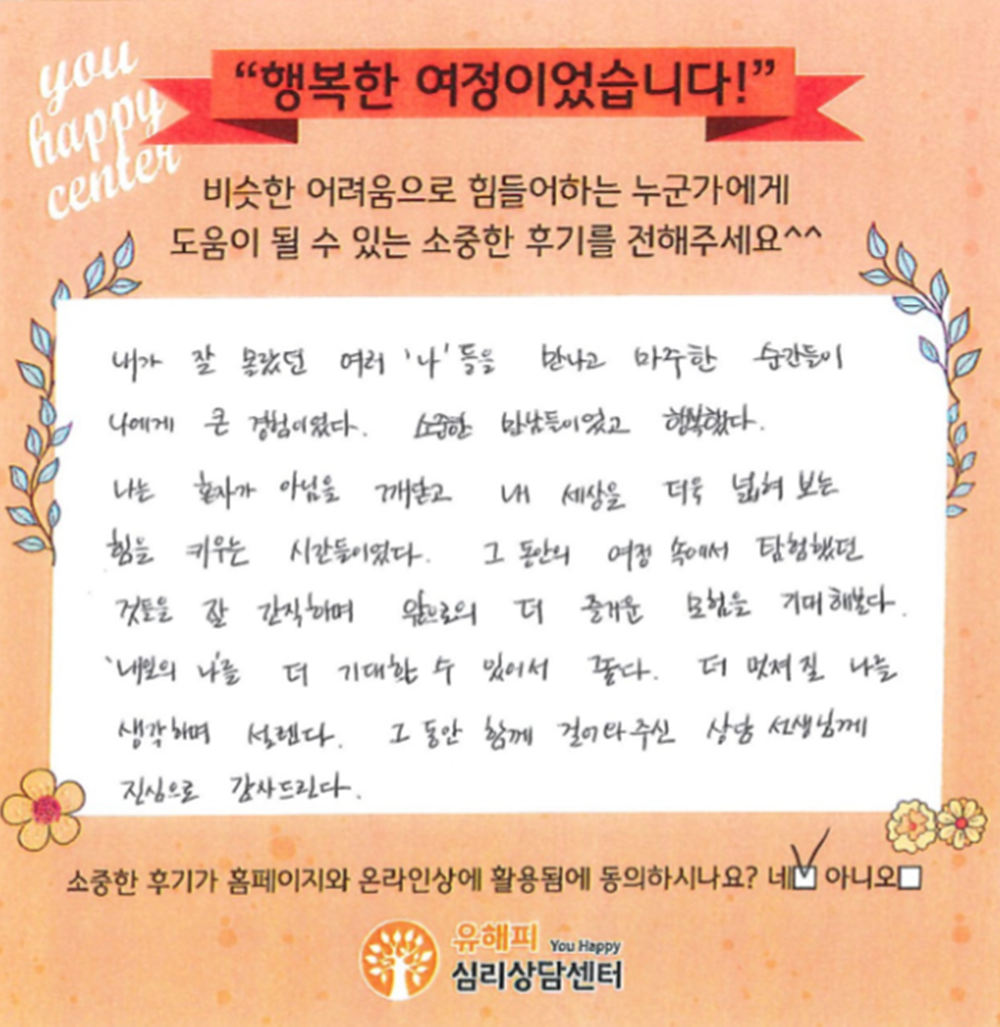 you
happy
center
“행복한 여정이었습니다!”
비슷한 어려움으로 힘들어하는 누군가에게
도움이 될 수 있는 소중한 후기를 전해주세요^^
내가 잘 몰랐던 여러 '나'들을 만나고 마주한 순간들이
나에게 큰 경험이었다. 소중한 만남들이었고 행복했다.
나는 혼자가 아님을 깨닫고 내 세상을 더욱 넓혀 보는
힘을 키우는 시간들이었다. 그 동안의 여정 속에서 탐험했던
것들을 잘 간직하며 앞으로의 더 즐거운 모험을 기대해본다.
'내일의 나'를 더 기대할 수 있어서 좋다. 더 멋져질 나를
생각하며 설렌다. 그 동안 함께 걸어와주신 상담 선생님께
진심으로 감사드린다.
소중한 후기가 홈페이지와 온라인상에 활용됨에 동의하시나요? 네☑ 아니오☐
유해피 You Happy
심리상담센터